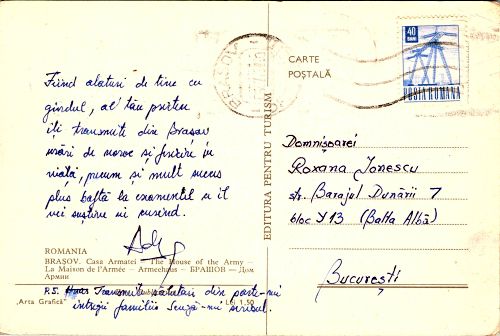 Fiind alături de tine cu
gîndul, al tău prieten
îți transmite din Brașov
urări de noroc și fericire în
viață, precum și mult succes
plus baftă la examenul ce îl
vei susține în curînd.
ROMANIA
BRAȘOV. Casa Armatei — The House of the Army —
La Maison de l'Armée — Armeehaus — БРАШОВ — Дом
Армии
P.S. Transmite salutări din partea-mi
întregii familii. Scuză-mi scrisul.
„Arta Grafică”
Lei 1.50
EDITURA PENTRU TURISM
BRAȘOV
CARTE
POȘTALĂ
40
BANI
POSTA ROMANA
Domnișoarei
Roxana Ionescu
str. Barajul Dunării 7
bloc Y13 (Balta Albă)
București